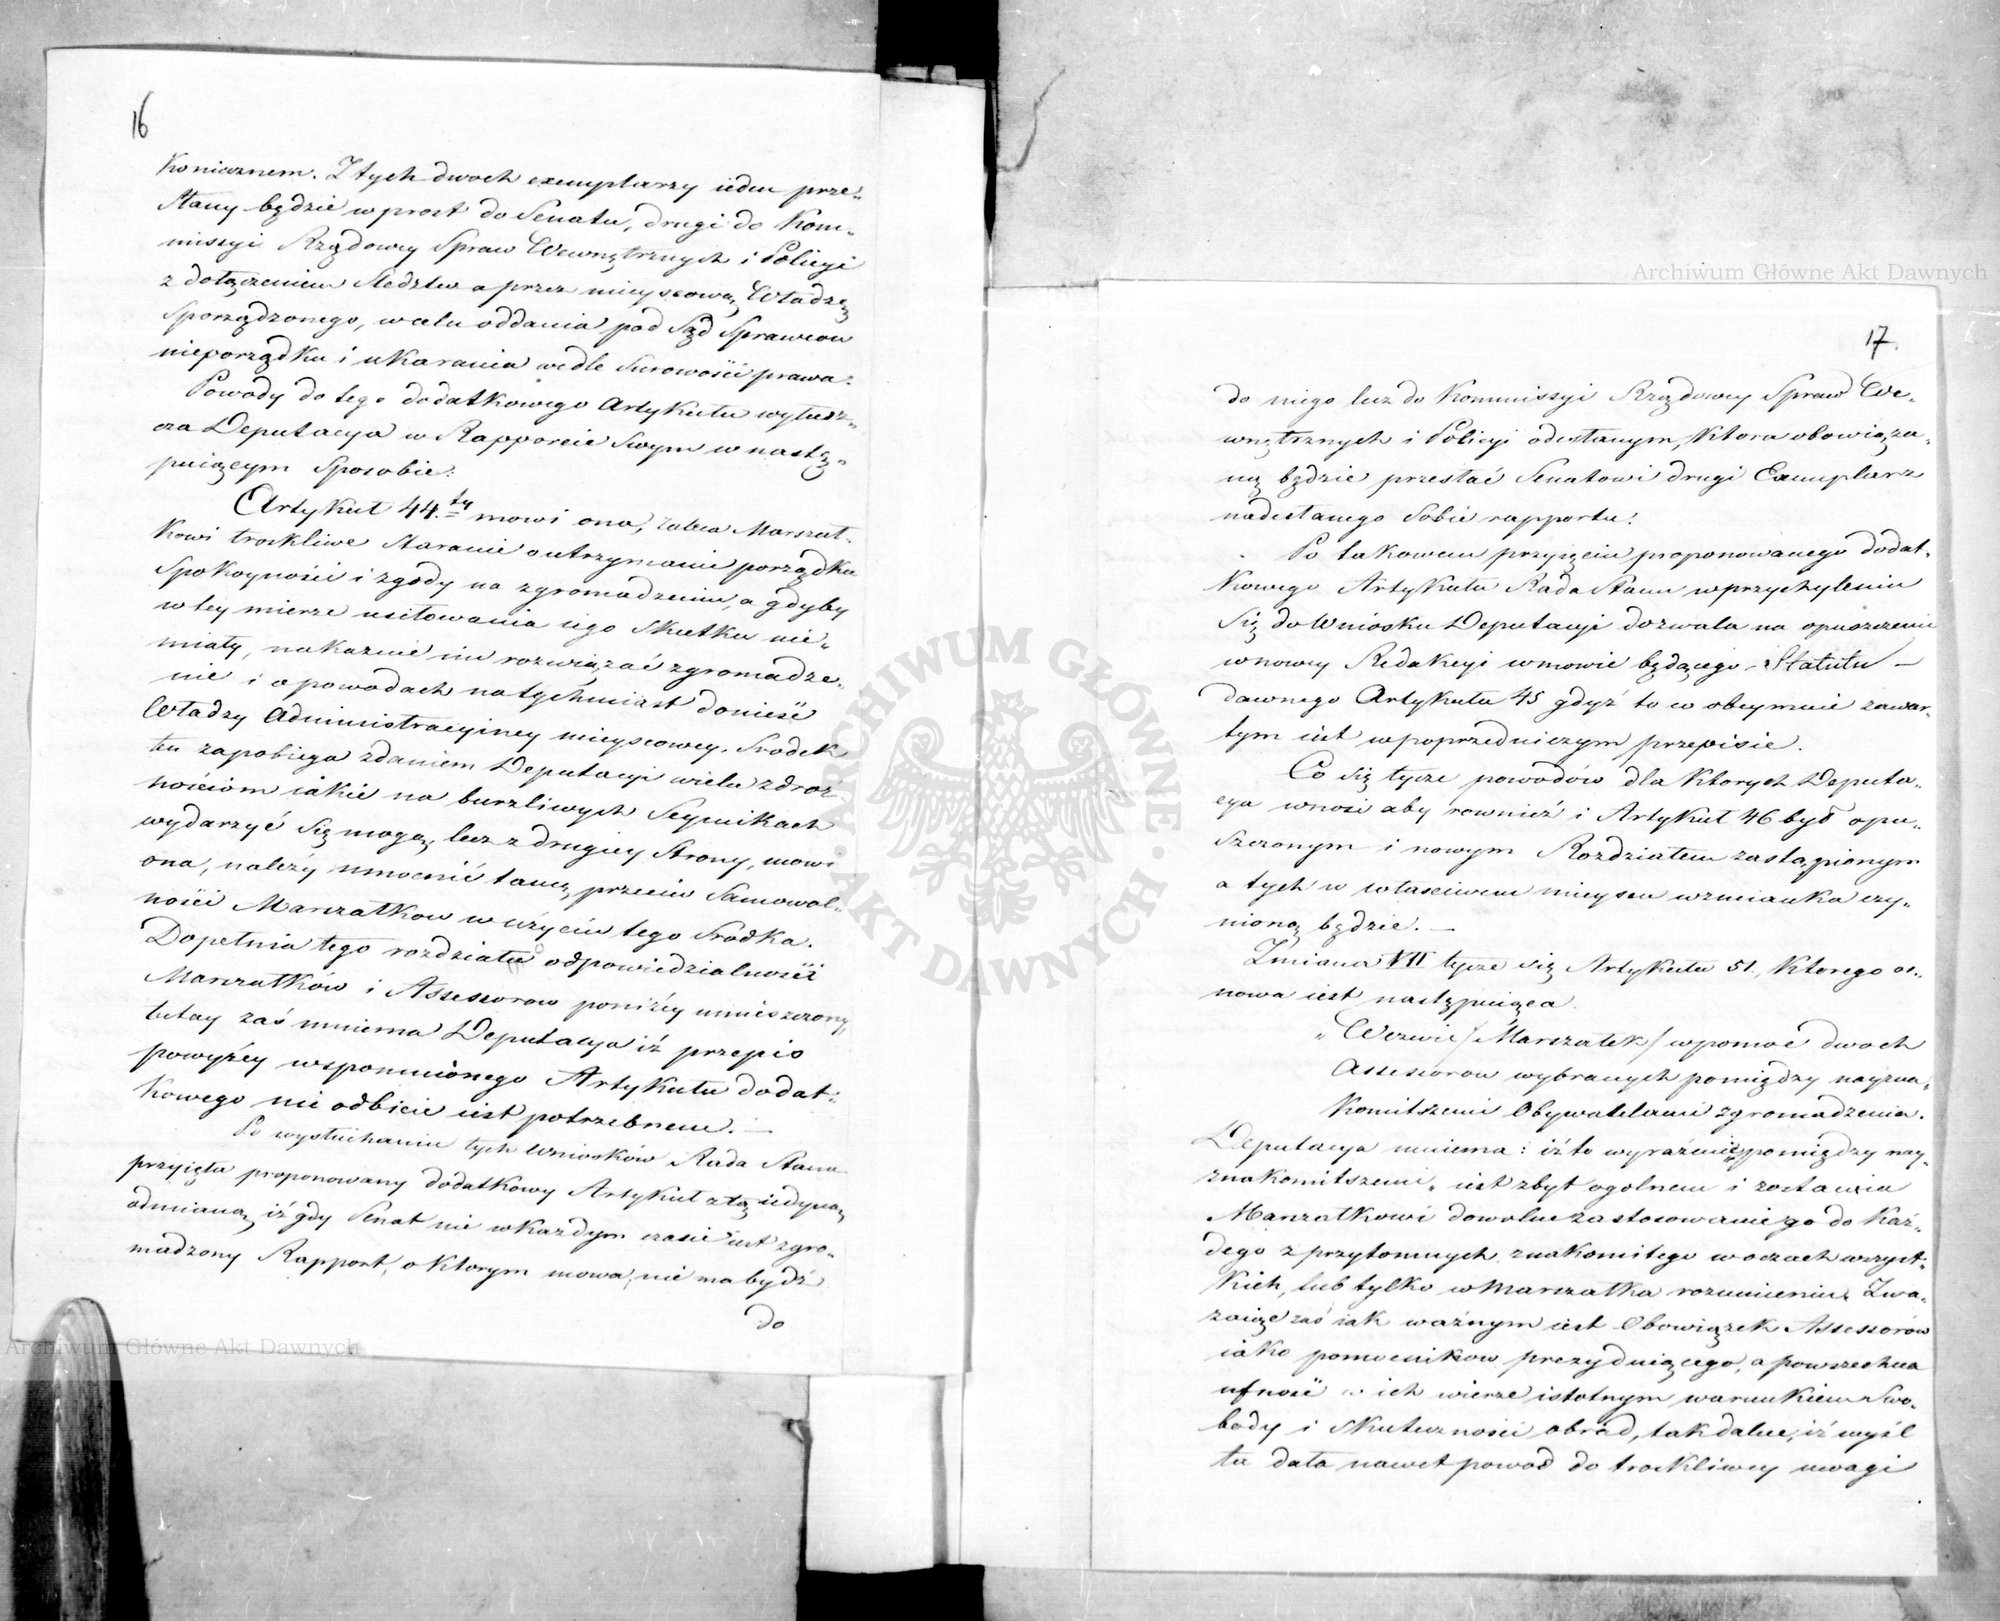 16
Koniecznem. Z tych dwoch exemplarzy ieden prze„
słany będzie wprost do Senatu, drugi do Kom„
missyi Rządowey Spraw Wewnętrznych i Policyi
z dołączeniem śledztwa przez mieyscową Władzę
sporządzonego, w celu oddania pod Sąd Sprawców
nieporządku i ukarania wedle surowości prawa.
Powody do tego dodatkowego Artykułu wyłusz„
cza Deputacya w Rapporcie swym w nastę„
puiącym sposobie:
Artykuł 44.ty mowi ona, zaleca Marszał„
kowi troskliwe staranie o utrzymanie porządku
spokoyności i zgody na zgromadzeniu, a gdyby
w tey mierze usiłowania iego skutku nie„
miały, nakazuie im rozwiązać zgromadze„
nie i o powodach natychmiast donieść
Władzy Administracyiney mieyscowey. Srodek
ten zapobiega zdaniem Deputacyi wielu zdroż„
nościom iakie na burzliwych Seymikach
wydarzyć się mogą, lecz z drugiey strony, mowi
ona, należy umocnić tamę przeciw samowol„
ności Marszałkow w użyciu tego srodka.
Dopełnia tego rozdział o odpowiedzialności
Marszałków i Assessorow poniżey umieszczony,
tutay zaś mniema Deputacya iż przepis
powyżey wspomnionego Artykułu dodat„
kowego nie odbicie iest potrzebnem. —
Po wysłuchaniu tych wniosków Rada Stanu
przyięła proponowany dodatkowy Artykuł z tą iedyną
odmianą iż gdy Senat nie w każdym czasie iest zgro„
madzony Rapport, o ktorym mowa, nie ma bydź
do
17.
do niego lecz do Kommissyi Rządowey Spraw We„
wnętrznych i Policyi odesłanym, ktora obowiąza„
ną będzie przesłać Senatowi drugi Exemplarz
nadesłanego sobie rapportu.
Po takowem przyięciu proponowanego dodat„
kowego Artykułu Rada Stanu w przychyleniu
się do wniosku Deputacyi dozwala na opuszczenie
w nowey Redakcyi w mowie będącego Statutu —
dawnego Artykułu 45 gdyż to co obeymuie zawar„
tym iest w poprzedniczym przepisie.
Co się tycze powodów dla ktorych Deputa„
cya wnosi aby rownież i Artykuł 46 był opu„
szczonym i nowym Rozdziałem zastąpionym
o tych w właściwem mieyscu wzmianka czy„
nioną będzie. —
Zmiana VII tycze się Artykułu 51, ktorego os„
nowa iest następuiąca
„Wezwie /Marszałek/ w pomoc dwoch
Assessorow wybranych pomiędzy nayzna„
komitszemi Obywatelami zgromadzenia.
Deputacya mniema: iż to wyrażenie „pomiędzy nay„
znakomitszemi„ iest zbyt ogolnem i zostawia
Marszałkowi dowolne zastosowanie go do każ„
dego z przytomnych znakomitego w oczach wszyst„
kich, lub tylko w Marszałka rozumieniu. Zwa„
żaiąc zaś iak ważnym iest Obowiązek Assessorów
iako pomocnikow prezyduiącego, a powszechna
ufność w ich wierze istotnym warunkiem swo„
body i skuteczności obrad, tak dalece, iż myśl
ta dała nawet powod do troskliwey uwagi
Archiwum Główne Akt Dawnych
Archiwum Główne Akt Dawnych
ARCHIWUM GŁÓWNE AKT DAWNYCH